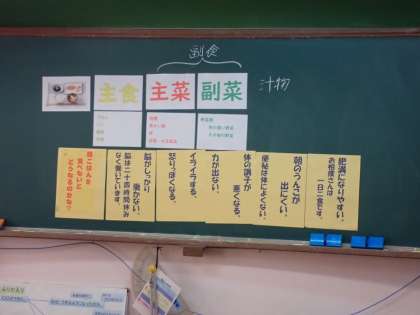 副食
主食
主菜
副菜
汁物
朝ごはんを
食べないと
どうなるのかな?
脳がしっかり
働かない。
脳は二十四時間休み
なく働いています。
イライラする。
怒りっぽくなる。
力が出ない。
体の調子が
悪くなる。
朝のうんこが
出にくい。
便秘は体によくない。
肥満になりやすい。
お相撲さんは
一日二食です。